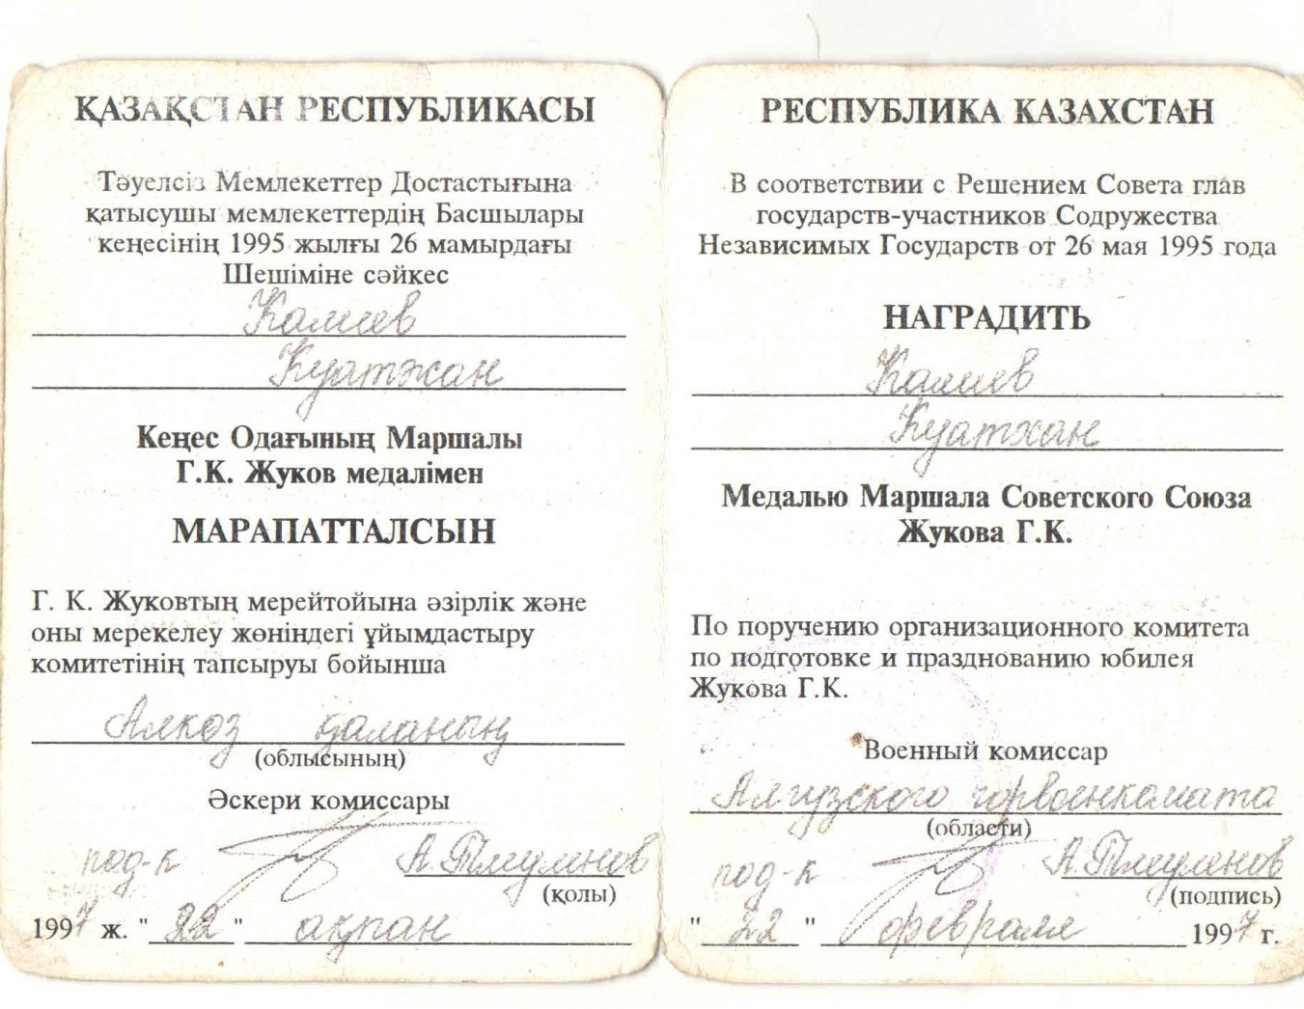 ҚАЗАҚСТАН РЕСПУБЛИКАСЫ
Тәуелсіз Мемлекеттер Достастығына
қатысушы мемлекеттердің Басшылары
кеңесінің 1995 жылғы 26 мамырдағы
Шешіміне сәйкес
Калиев
Куатжан
Кеңес Одағының Маршалы
Г.К. Жуков медалімен
МАРАПАТТАЛСЫН
Г. К. Жуковтың мерейтойына әзірлік және
оны мерекелеу жөніндегі ұйымдастыру
комитетінің тапсыруы бойынша
қаланың
(облысының)
Әскери комиссары
под-к А. Тлеуленов
(қолы)
1997 ж. "22" ақпан
РЕСПУБЛИКА КАЗАХСТАН
В соответствии с Решением Совета глав
государств-участников Содружества
Независимых Государств от 26 мая 1995 года
НАГРАДИТЬ
Калиев
Куатхан
Медалью Маршала Советского Союза
Жукова Г.К.
По поручению организационного комитета
по подготовке и празднованию юбилея
Жукова Г.К.
Военный комиссар
горвоенкомата
(области)
под-к А. Тлеуленов
(подпись)
"22" февраля 1997 г.